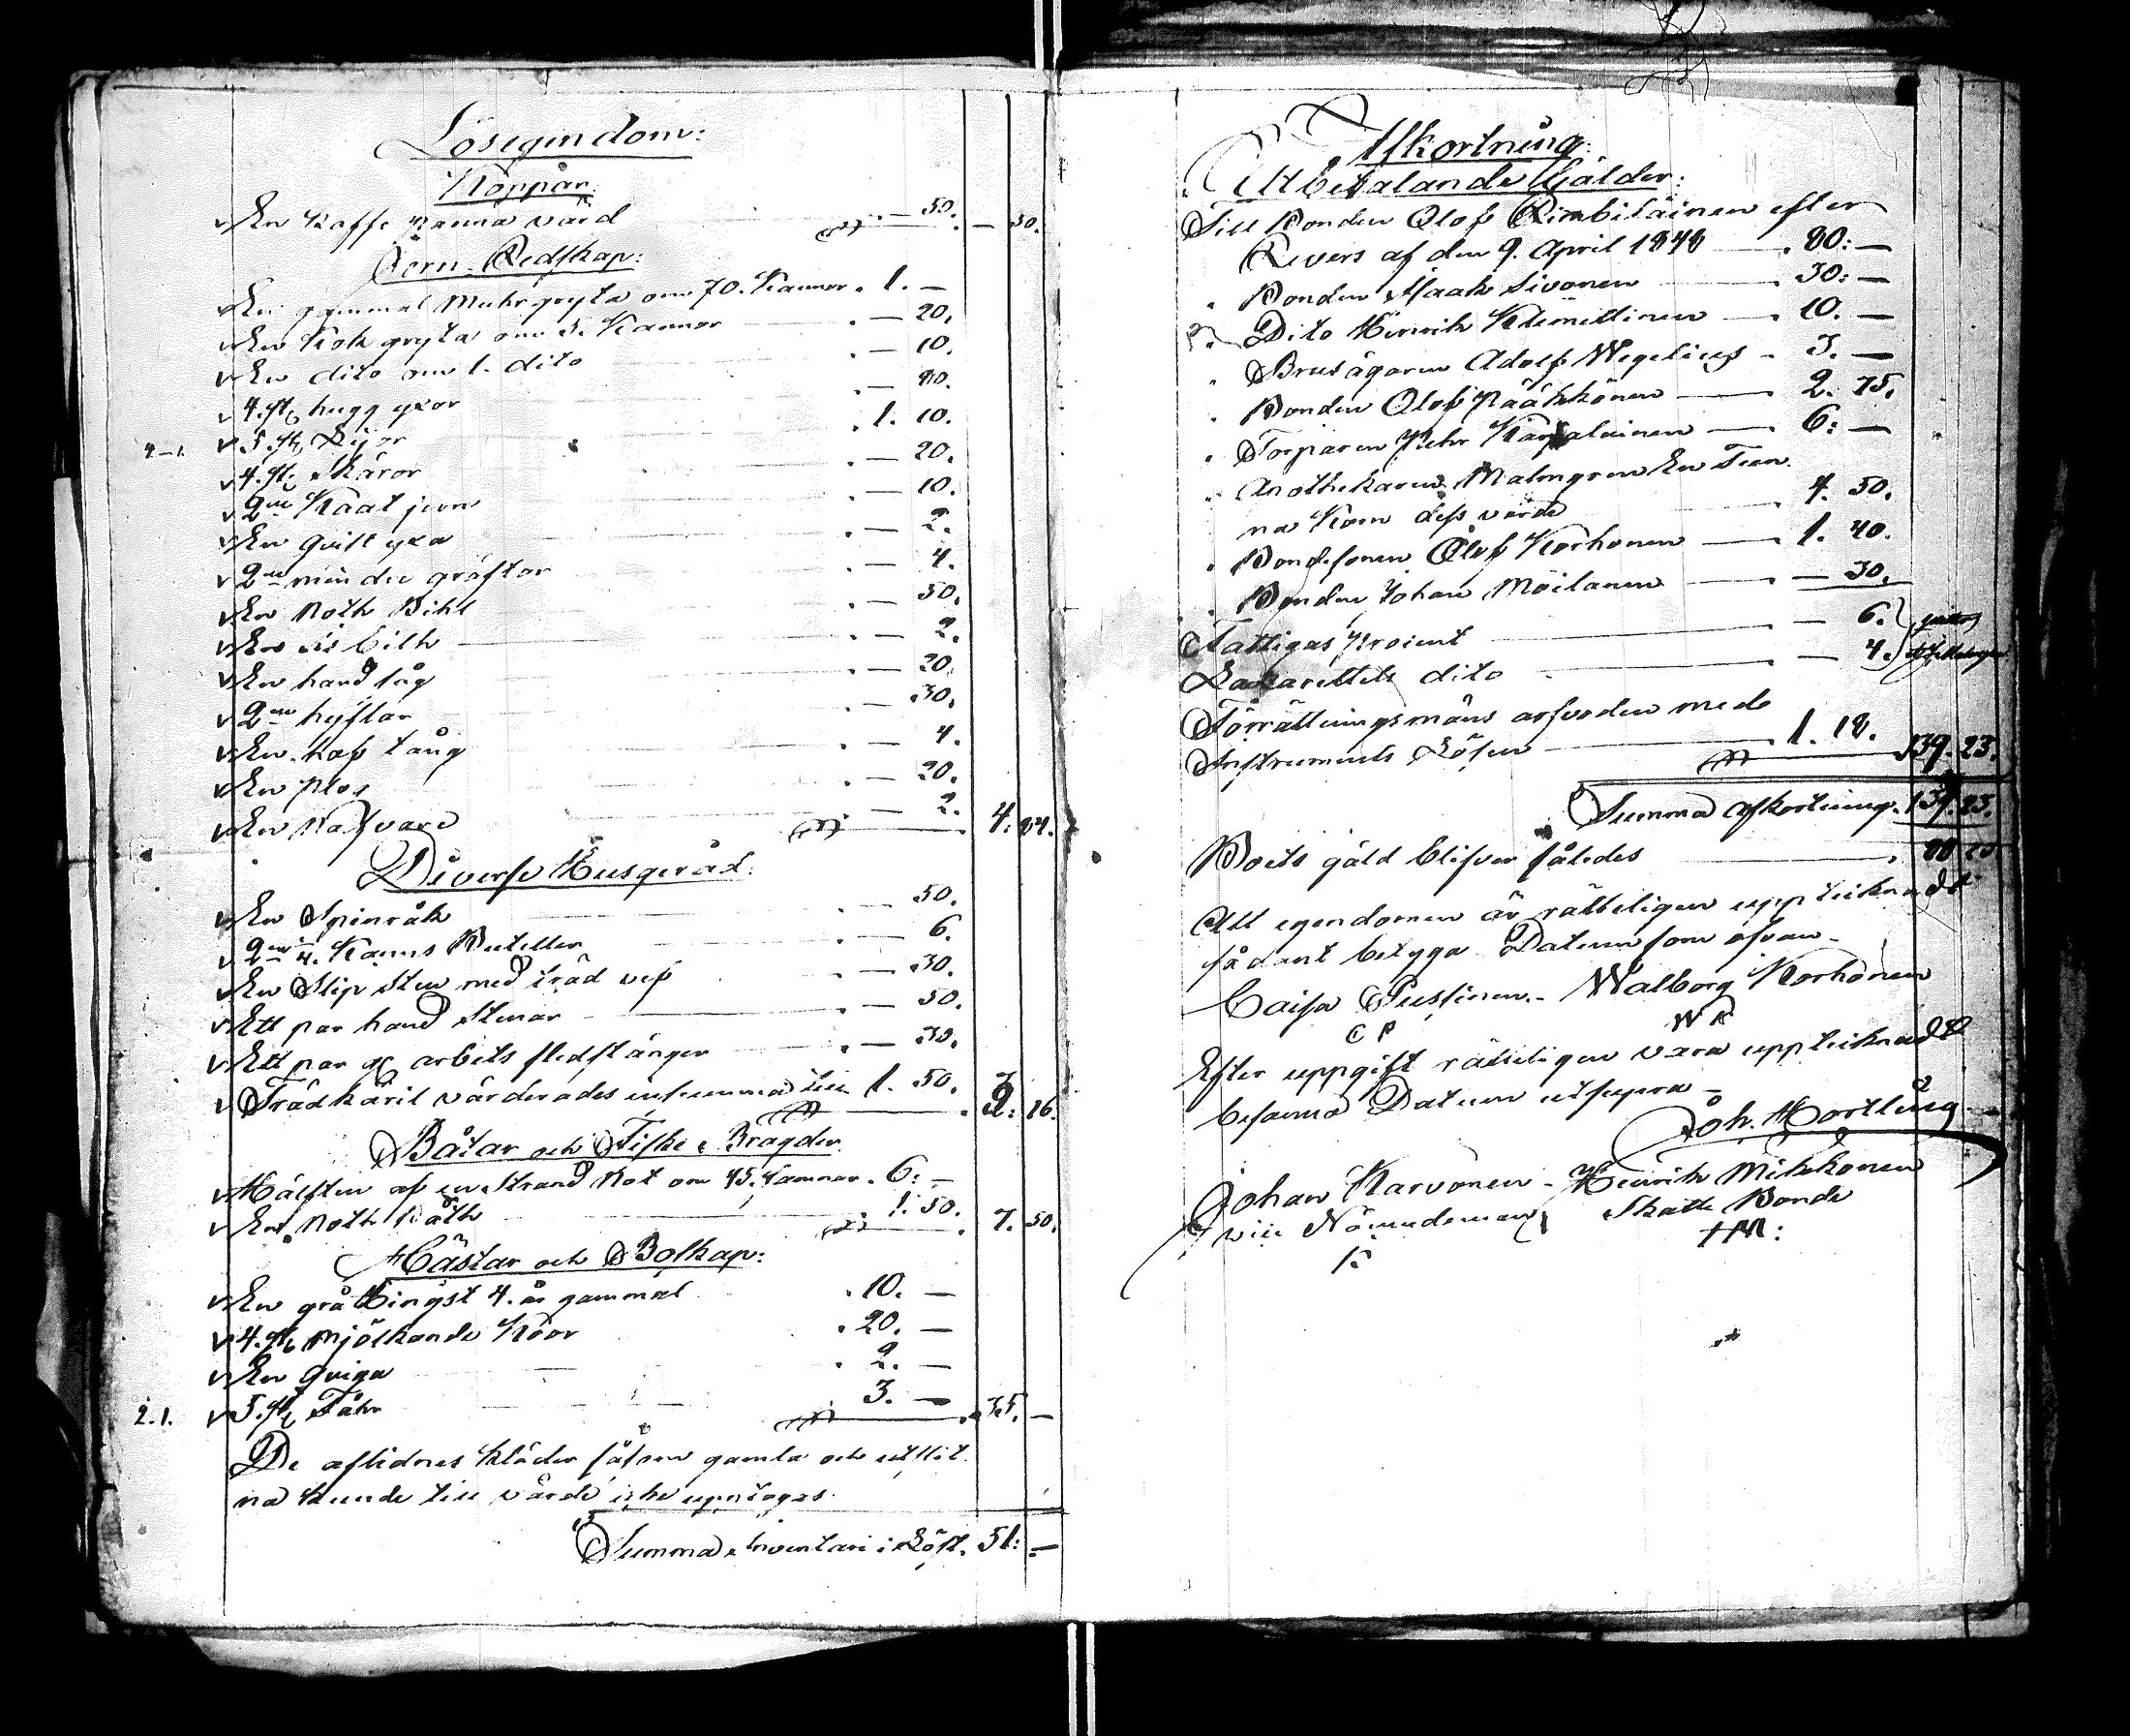 Lösegendom:
Koppar.
v En Kaffe Panna värd — 50. — 50.
Jern-Redskap:
v En gammal Muhr gryta om 70. Kannor . 1. —
v En Kok gryta om 3. Kannor . — 20.
v En dito om 1. dito . — 10.
v 4. st. hugg yxor . — 40.
2-1. v 5. st. Lijor . 1. 10.
v 4. st. Skäror . — 20.
v 2ne jern . — 10.
v En yxa . — 2.
v 2ne mindre gräftor . — 4.
v En Noth Bihl . — 50.
v En is bilh — . — 2.
v En hand såg . — 20.
v 2ne hyflar . — 30.
v En tång . — 4.
v En Plog . — 20.
v En Nafvare . — 2. 4. 84.
Diverse Husgeråd:
v En Spinråk . — 50.
v 2ne 4. Kanns Buteller . — 6.
v En Slip sten med träd vef . — 30.
v Ett par hand Stenar . — 50.
v Ett par arbets sledstänger . — 30.
v Trädkäril värderades insumma till 1. 50. 16.
Båtar och Fiske Bragder
v Hälften af en Strand Not om 45. famnar . 6: —
v En Noth Båth . 1. 50. 7. 50.
Hästar och Bolkap:
v En grå Hingst 4. år gammal . 10. —
v 4. st. Mjölkande Koor . 20. —
v En Quiga . 2. —
2.1. v 5. st. Fåhr 3. — 35. —
De aflidnes kläder såsom gamla och utslit-
na kunde till värde icke upptagas.
Summa Inventarii i Löst. 51: —
Afkortning:
Att betalande Gjälder:
Till Bonden Olof Rimbiläinen efter
Revers af den 9. April 1848 — . 80: —
" Bonden Isaak Sivonen — 30: —
" Dito Henrik Klemettinen — . 10. —
" Bruksägaren Adolf Wegelius - 3. —
" Bonden Olof Pääkkönen — 2. 75.
" Torparen Pehr Karjalainen — 6: —
" Apothekaren Malmgren En Tun-
na Korn dess värde . 4. 50.
" Bondesonen Olof Korhonen — 1. 40.
" Bonden Johan Möilanen — . — 30.
Fattigas Procent — — 6.
Lazarettets dito — — 4.
Förrättningsmäns arfvoden med
Instruments Lösen — 1. 18. 139. 23.
Summa afkortning. 139. 23.
Boets gäld blifver således — .
Att egendomen är rätteligen uppteiknadt
sådant betyga Datum som ofvan -
Caisa Pustinen - Walborg Korhonen
C P W K
Efter uppgift rätteligen vara uppteiknadt
besanna Datum utsupra -
Joh. Hortling
Johan Karvonen - Henrik Mikkonen
vice Nämndeman Skatte Bonde
HM: